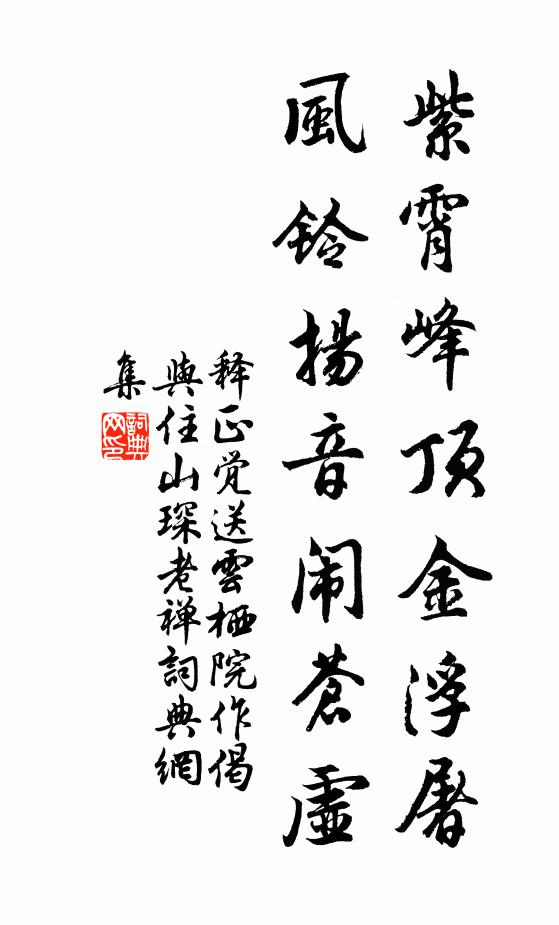 紫霄峰顶金浮屠
風鈴揚音闹蒼虛
释正觉送雲栖院作偈
與住山琛老禅詞典網
集
詞典
网印